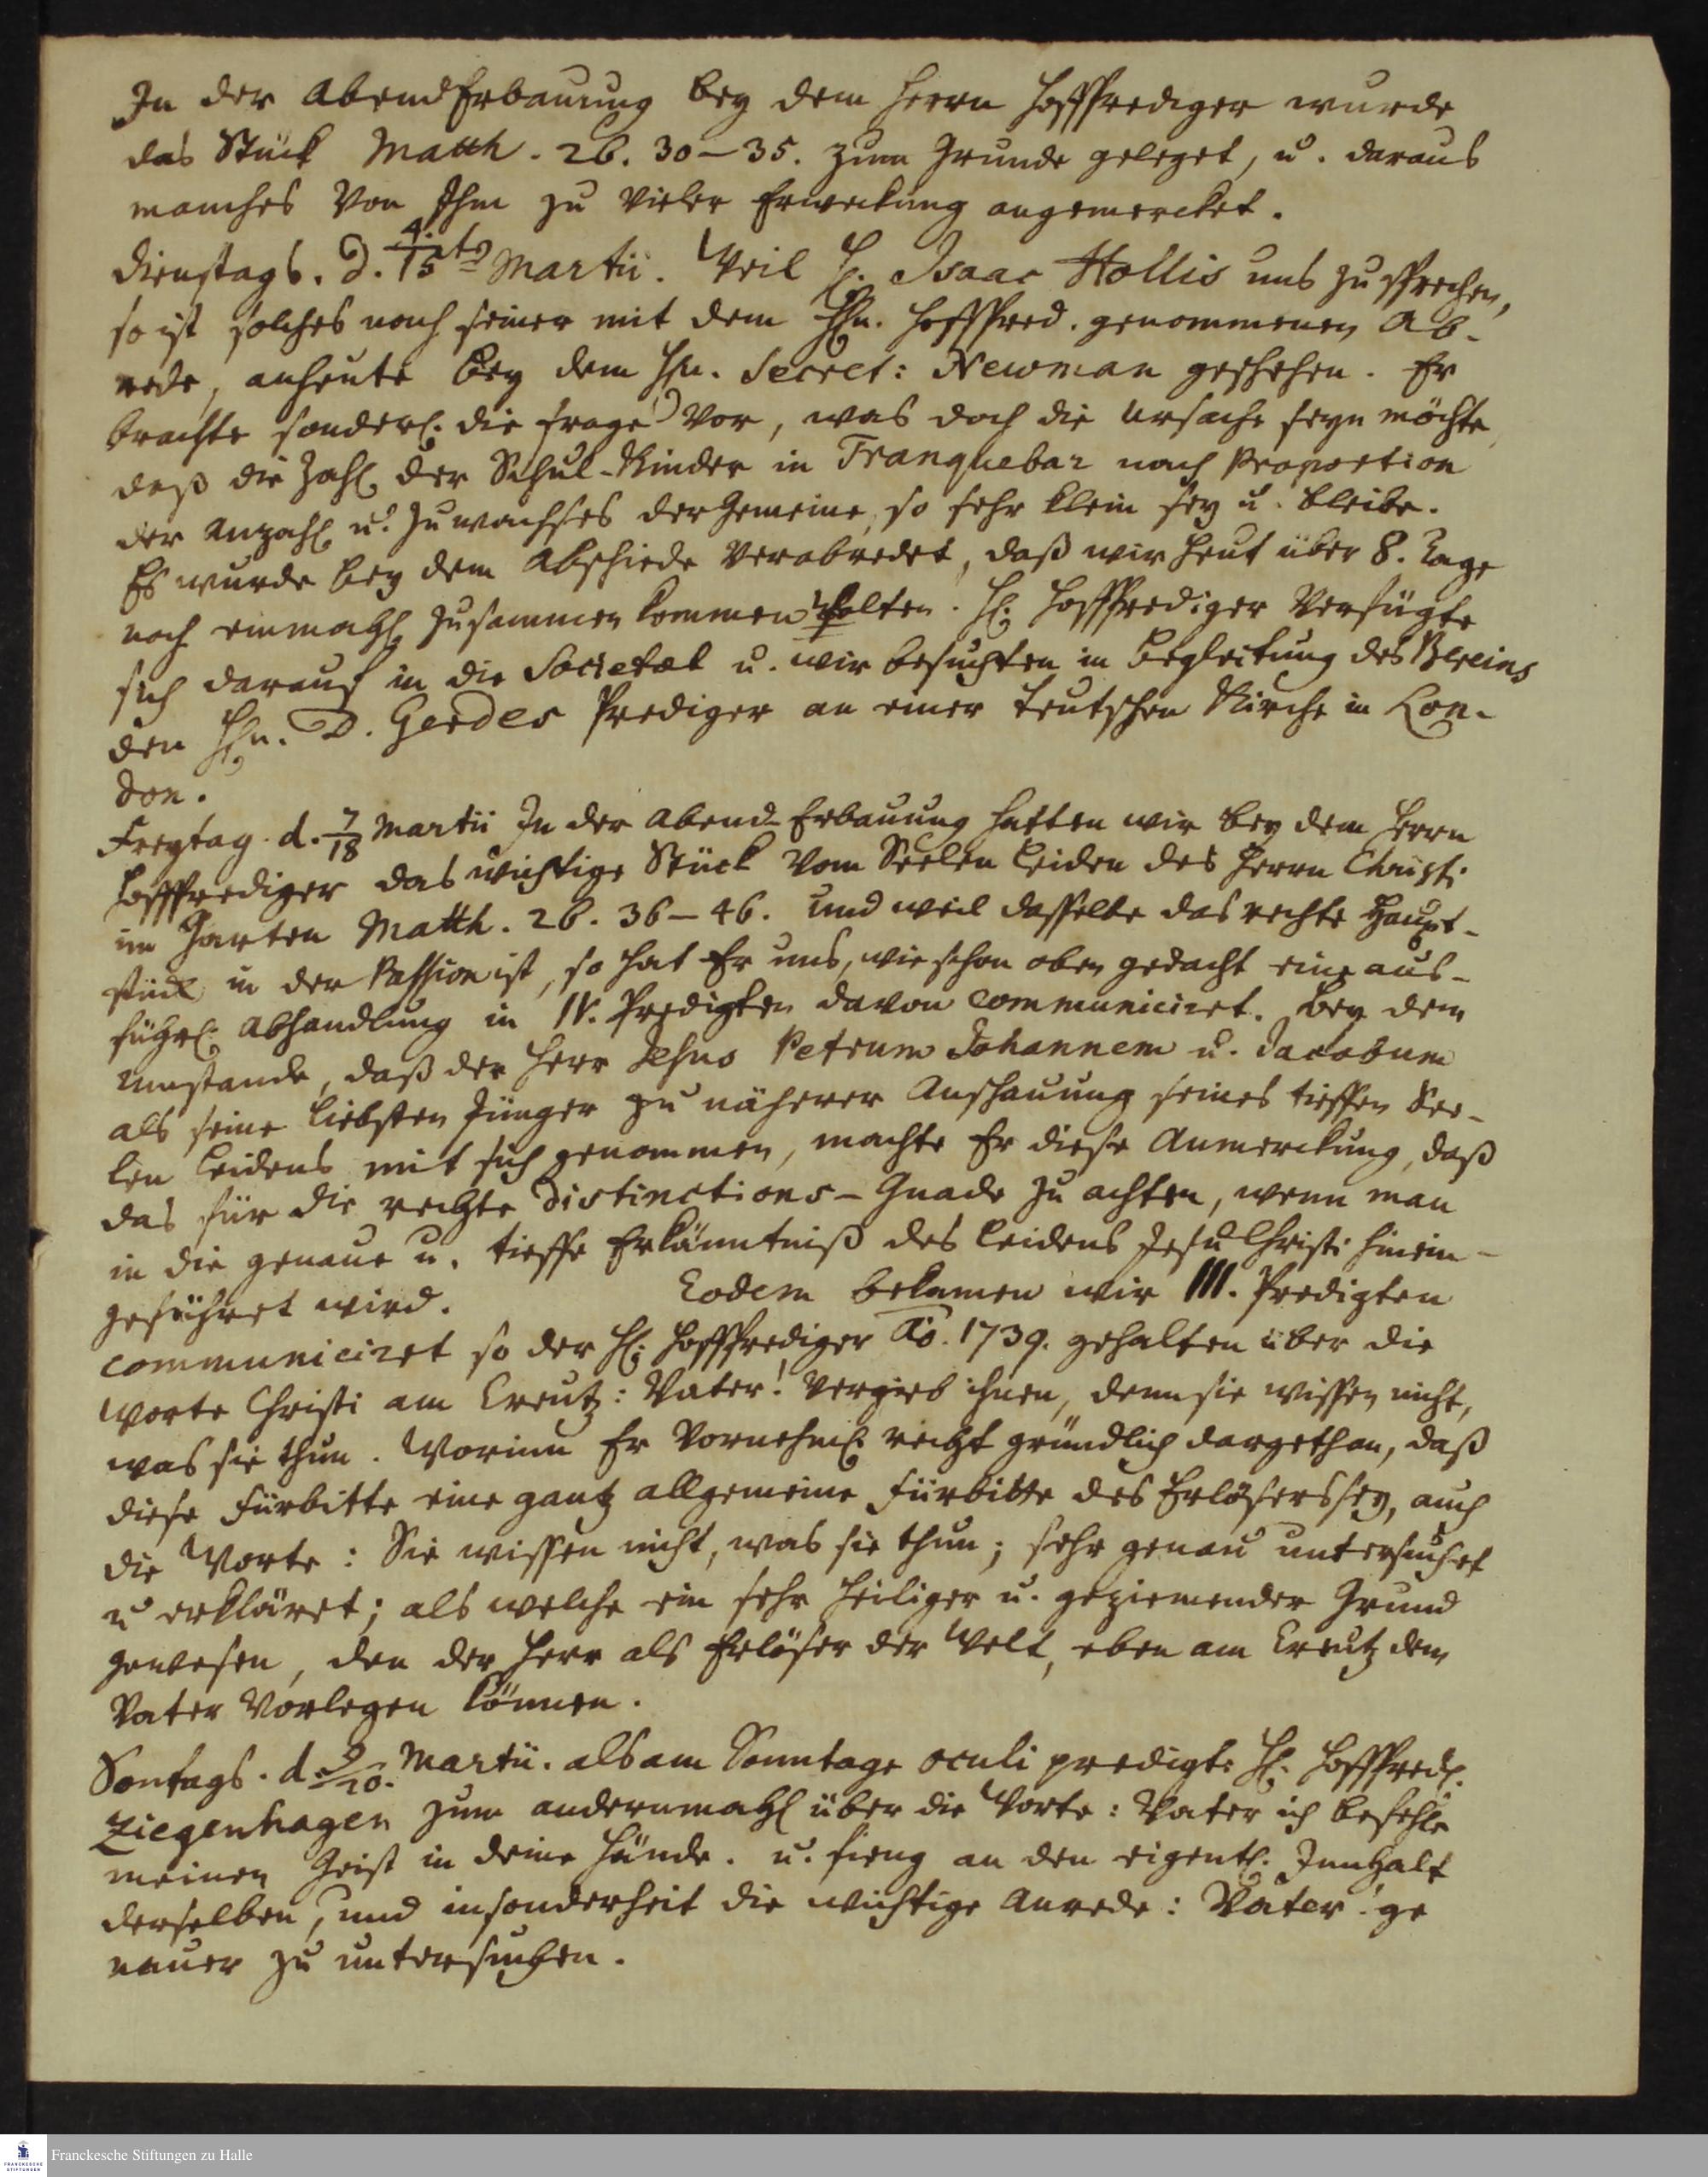 In der Abend Erbauung bey dem Herrn Hoffprediger wurde
das Stück Matth. 26. 30–35. zum Grunde geleget, u. daraus
manches von Ihm zu vieler Erweckung angemercket.
Dienstags. d. 4./15ten Martii. Weil H. Isaac Hollis uns zu sprechen,
so ist solches nach seiner mit dem Hn. Hoffpred. genommenen Ab-
rede, anheute bey dem Hn. Secret: Newman geschehen. Er
brachte sonderl. die Frage vor, was doch die Ursache seyn möchte,
daß die Zahl der Schul-Kinder in Tranquebar nach Proportion
der Anzahl u. Zuwachses der Gemeine, so sehr klein sey u. bleibe.
Es wurde bey dem Abschiede verabredet, daß wir heut über 8. Tage
noch einmahl zusammen kommen wolten. H. Hoffprediger verfügte
sich darauf in die Societæt u. wir besuchten in Begleitung des
den Hn. D. Gerdes Prediger an einer teutschen Kirche in Lon-
don.
Freytag. d. 7/18 Martii In der Abend-Erbauung hatten wir bey dem Herrn
Hoffprediger das wichtige Stück vom Seelen Leiden des Herrn Christi
im Garten Matth. 26. 36–46. und weil dasselbe das rechte Haupt-
stück in der Passion ist, so hat Er uns, wie schon oben gedacht eine aus-
führl. Abhandlung in IV. Predigten davon communiciret. Bey dem
Umstande, daß der Herr Jesus Petrum Johannem u. Jacobum
als seine liebsten Jünger zu näherer Anschauung seines tieffen See-
len Leidens mit sich genommen, machte Er diese Anmerckung, daß
das für die rechte Distinctions-Gnade zu achten, wenn man
in die genaue u. tieffe Erkänntniß des Leidens Jesu Christi hinein-
geführet wird. Eodem bekamen wir III. Predigten
communiciret so der H. Hoffprediger Ao. 1739. gehalten über die
Worte Christi am Creutz: Vater! vergieb ihnen, denn sie wissen nicht,
was sie thun. Worinn Er vornehml. recht gründlich dargethan, daß
diese Fürbitte eine gantz allgemeine Fürbitte des Erlösers sey, auch
die Worte: Sie wissen nicht, was sie thun; sehr genau untersuchet
u erkläret; als welche ein sehr heiliger u. geziemender Grund
gewesen, den der Herr als Erlöser der Welt, eben am Creutz dem
Vater vorlegen können.
Sontags. d. 9/20. Martii. als am Sonntage Oculi predigte H. Hoffpred.
Ziegenhagen zum andernmahl über die Worte: Vater ich befehle
meinen Geist in deine Hände. u. fieng an den eigentl. Innhalt
derselben, und insonderheit die wichtige Anrede: Vater! ge
nauer zu untersuchen.
Franckesche Stiftungen zu Halle
FRANCKESCHE
STIFTUNGEN